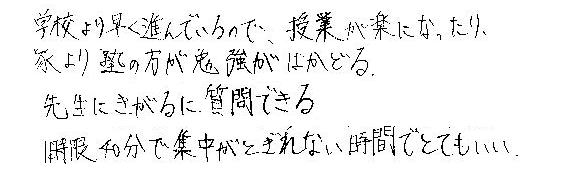 学校より早く進んでいるので、授業が楽になったり、
家より塾の方が勉強がはかどる。
先生にきがるに質問できる
1時限40分で集中がとぎれない時間でとてもいい。